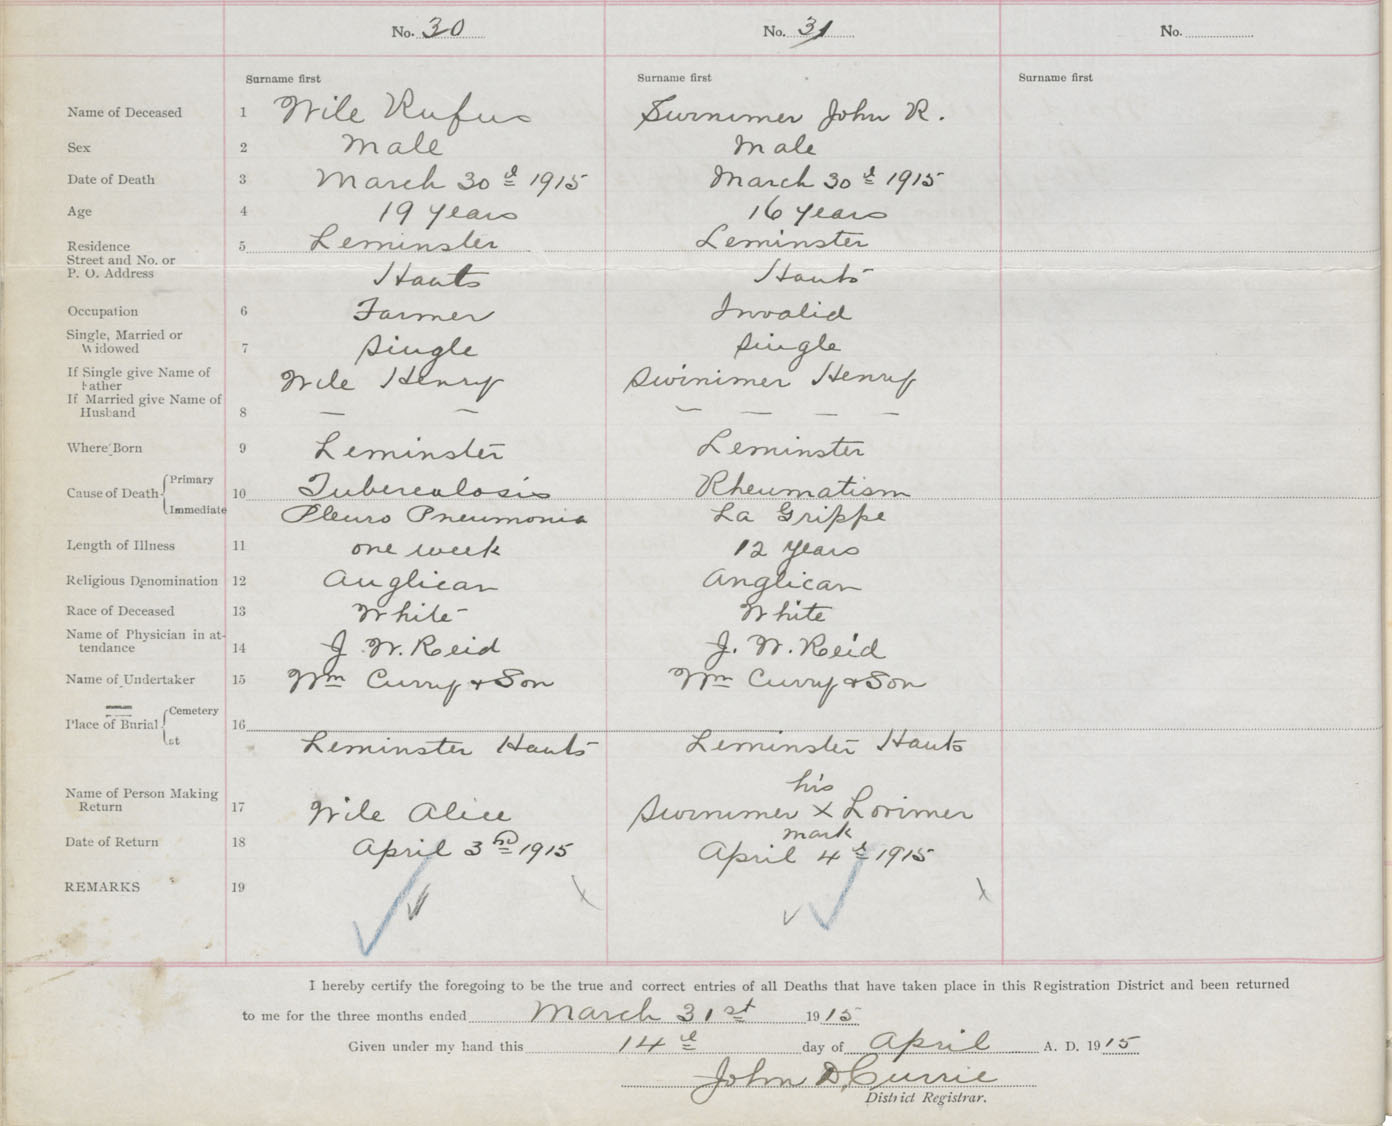 No. 30 No. 31 No.
Surname first Surname first Surname first
Name of Deceased 1 Wile Rufus Swinimer John R.
Sex 2 Male Male
Date of Death 3 March 30th 1915 March 30th 1915
Age 4 19 years 16 years
Residence 5 Leminster Leminster
Street and No. or
P. O. Address Hants Hants
Occupation 6 Farmer Invalid
Single, Married or
Widowed 7 Single Single
If Single give Name of
Father Wile Henry Swinimer Henry
If Married give Name of
Husband 8 — — — — — —
Where Born 9 Leminster Leminster
Cause of Death Primary 10 Tuberculosis Rheumatism
Immediate Pleuro Pneumonia La Grippe
Length of Illness 11 one week 12 years
Religious Denomination 12 Anglican Anglican
Race of Deceased 13 White White
Name of Physician in at-
tendance 14 J. W. Reid J. W. Reid
Name of Undertaker 15 Wm Curry & Son Wm Curry & Son
Place of Burial Cemetery 16
at Leminster Hants Leminster Hants
his
Name of Person Making
Return 17 Wile Alice Swinimer X Lorimer
mark
Date of Return 18 April 3rd 1915 April 4th 1915
REMARKS 19
I hereby certify the foregoing to be the true and correct entries of all Deaths that have taken place in this Registration District and been returned
to me for the three months ended March 31st 1915
Given under my hand this 14th day of April A. D. 1915
John D. Currie
District Registrar.